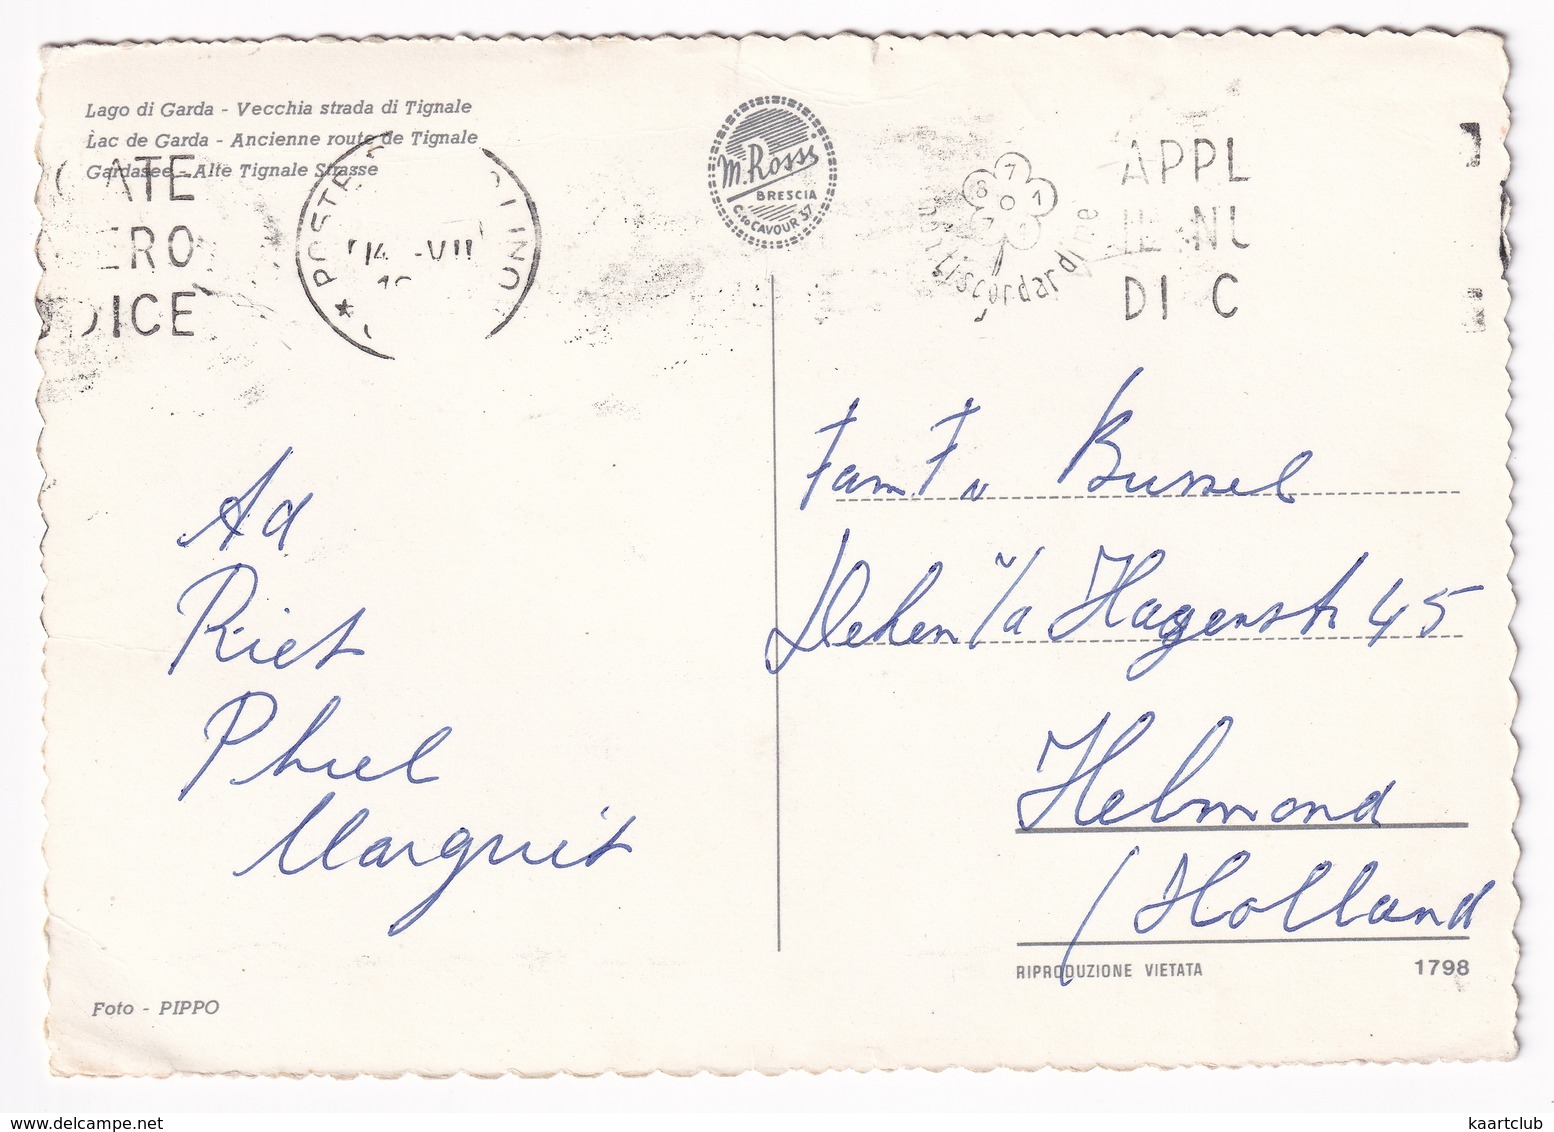 Lago di Garda - Vecchia strada di Tignale
Lac de Garda - Ancienne route de Tignale
Gardasee - Alte Tignale Strasse
ATE
ERO
DICE
POSTE
14 -VII
M. Rossi
BRESCIA
C.so CAVOUR 37
non ti scordar di me
APPL
IL NU
DI C
Ad
Riet
Phiel
Margriet
Fam F v Bussel
Deken v/d Hagenstr 45
Helmond
/ Holland
RIPRODUZIONE VIETATA 1798
Foto - PIPPO
kaartclub